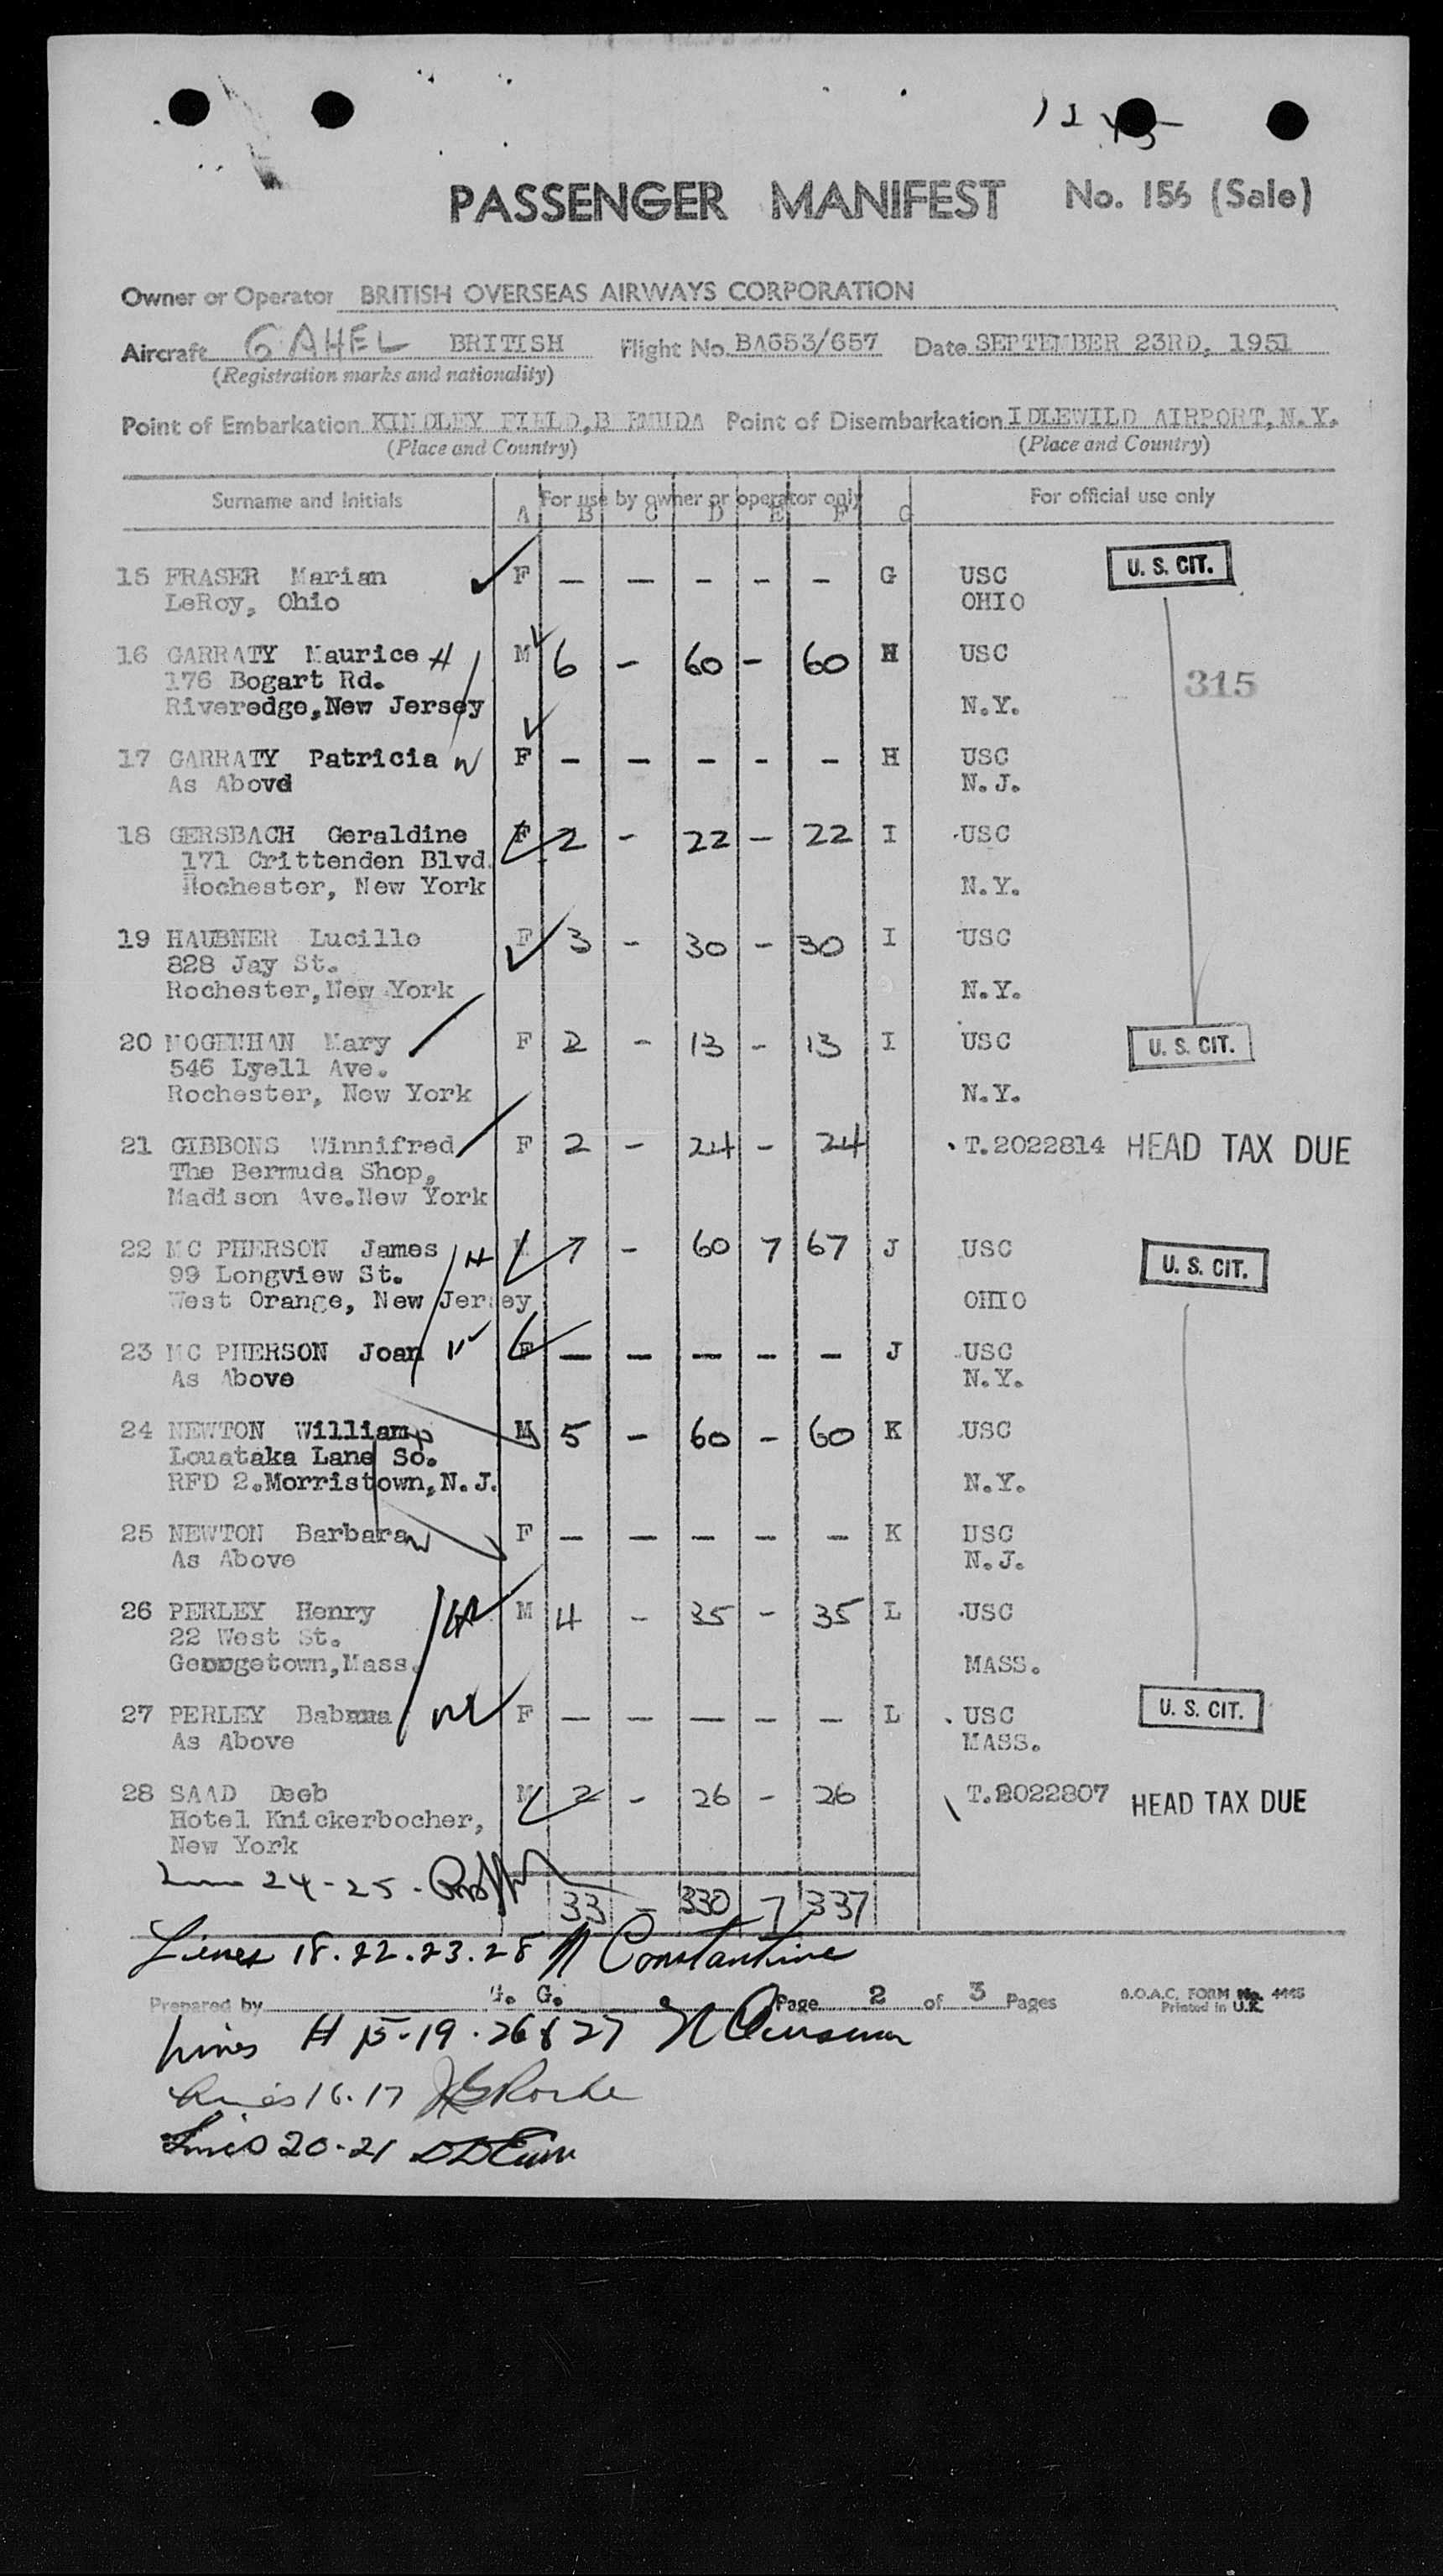 PASSENGER MANIFEST No. 156 (Sale)
Owner or Operator BRITISH OVERSEAS AIRWAYS CORPORATION
Aircraft G AHEL BRITISH Flight No. BA653/657 Date SEPTEMBER 23RD, 1951
(Registration marks and nationality)
Point of Embarkation KINDLEY FIELD, B RMUDA Point of Disembarkation IDLEWILD AIRPORT, N.Y.
(Place and Country) (Place and Country)
Surname and Initials For use by owner or operator only For official use only
A B C D E F G
15 FRASER Marian F — — — — — G USC U. S. CIT.
LeRoy, Ohio OHIO
16 GARRATY Maurice H M 6 - 60 - 60 H USC
176 Bogart Rd. 315
Riveredge, New Jersey N.Y.
17 GARRATY Patricia W F — — — — — H USC
As Above N.J.
18 GERSBACH Geraldine F 2 - 22 - 22 I USC
171 Crittenden Blvd.
Rochester, New York N.Y.
19 HAUBNER Lucille F 3 - 30 - 30 I USC
828 Jay St.
Rochester, New York N.Y.
20 MOGENHAN Mary F 2 - 13 - 13 I USC U. S. CIT.
546 Lyell Ave.
Rochester, New York N.Y.
21 GIBBONS Winnifred F 2 - 24 - 24 T.2022814 HEAD TAX DUE
The Bermuda Shop,
Madison Ave. New York
22 MC PHERSON James H M 7 - 60 7 67 J USC U. S. CIT.
99 Longview St.
West Orange, New Jersey OHIO
23 MC PHERSON Joan W F — — — — — J USC
As Above N.Y.
24 NEWTON William M 5 - 60 - 60 K USC
Louataka Lane So.
RFD 2. Morristown, N.J. N.Y.
25 NEWTON Barbara W F — — — — — K USC
As Above N.J.
26 PERLEY Henry H M 4 - 35 - 35 L USC
22 West St.
Georgetown, Mass. MASS.
27 PERLEY W F — — — — — L USC U. S. CIT.
As Above MASS.
28 SAAD Deeb M 2 - 26 - 26 T.2022807 HEAD TAX DUE
Hotel Knickerbocher,
New York
24-25.
33 - 330 7 337
Lines 18.22.23.28 Constantine
Prepared by G. Page 2 of 3 Pages B.O.A.C. FORM No. 4445
Printed in U.K.
Lines 15-19-26 & 27
Lines 16.17
Lines 20-21